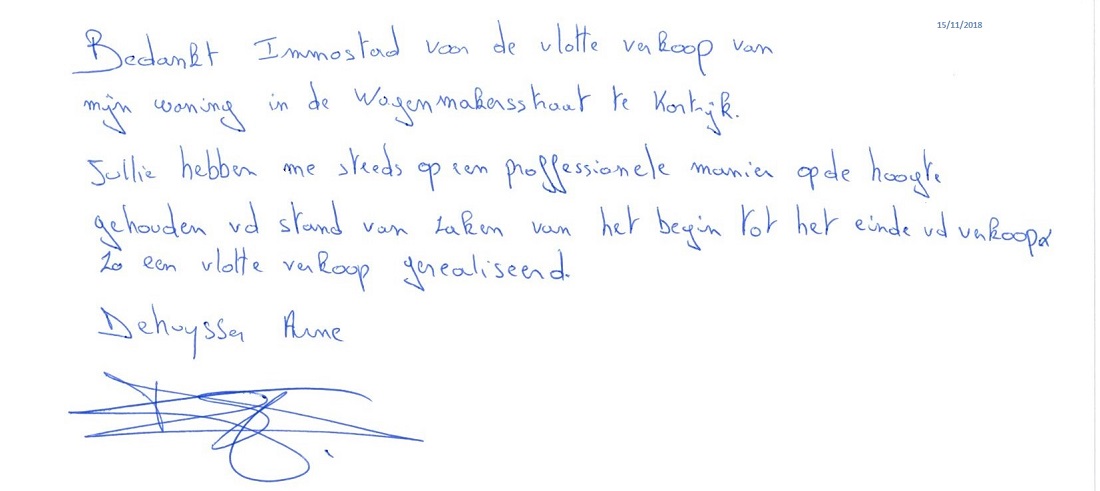 15/11/2018
Bedankt Immostad voor de vlotte verkoop van
mijn woning in de Wagenmakersstraat te Kortrijk.
Jullie hebben me steeds op een proffessionele manier op de hoogte
gehouden vd stand van zaken van het begin tot het einde vd verkoop &
Zo een vlotte verkoop gerealiseerd.
Dehuysser Arne